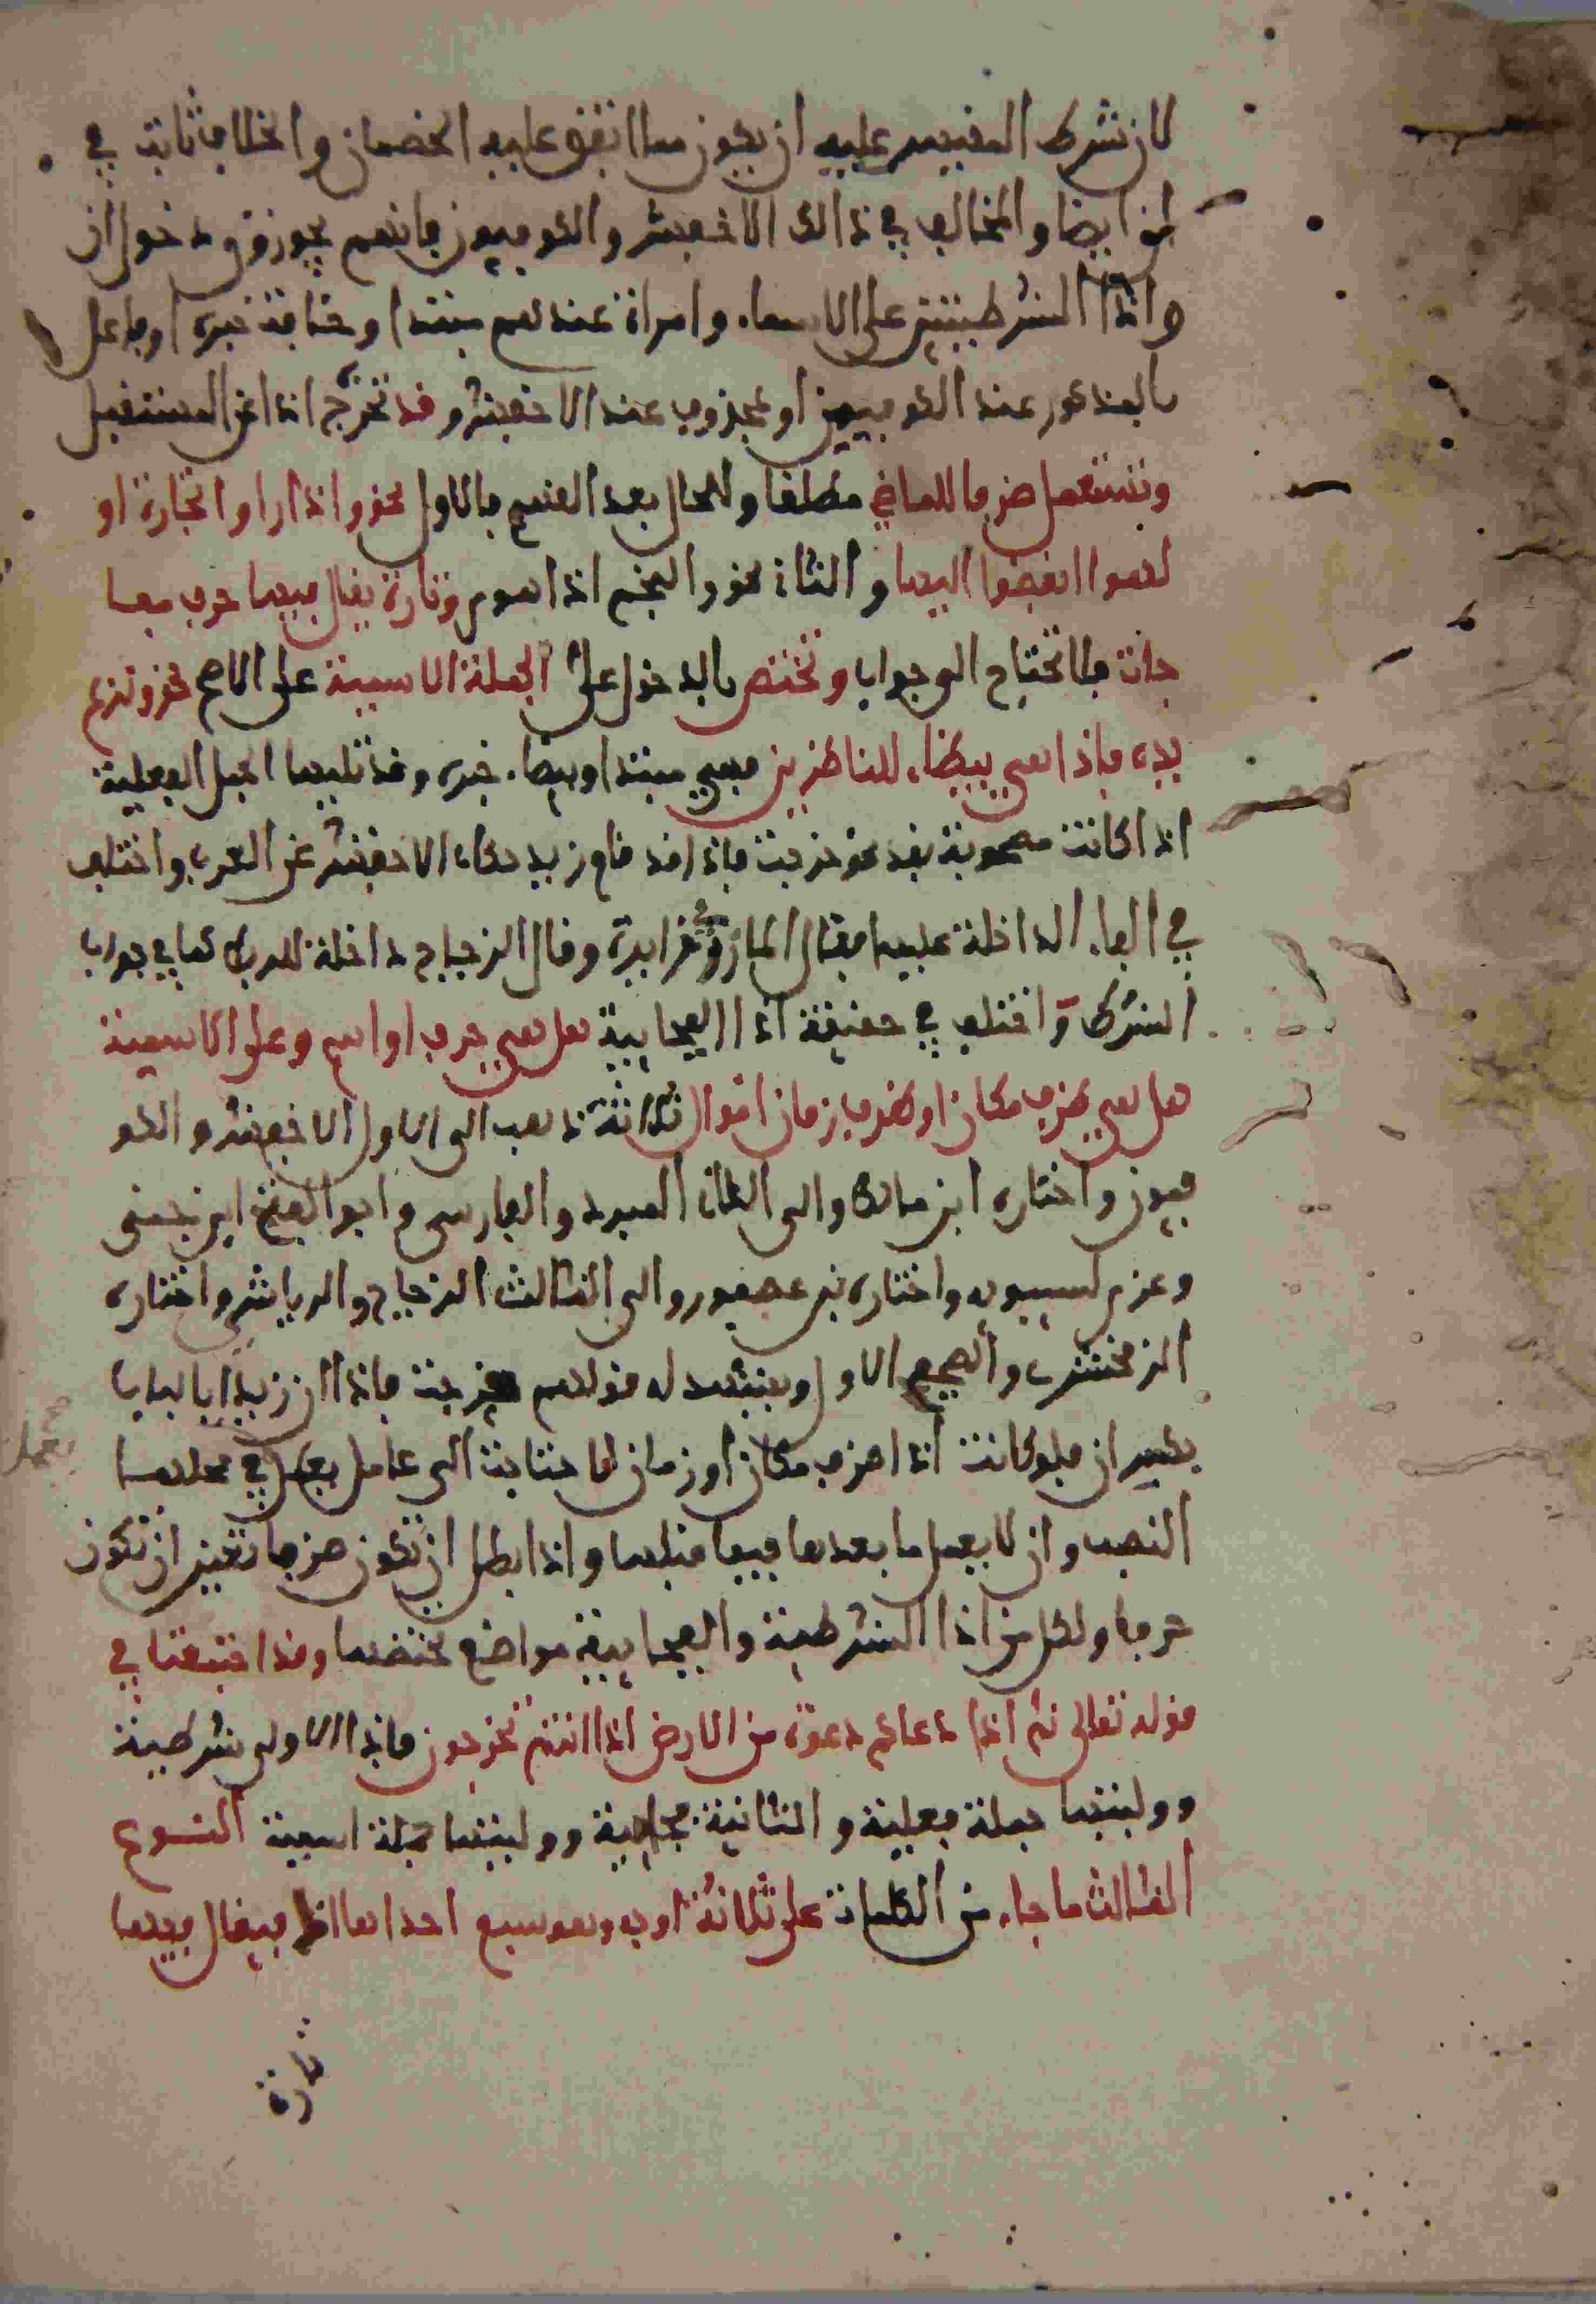 لان شرط المقيس عليه ان يكون مما اتفق عليه الخصمان والخلاف ثابت في
لو ايضا والمخالف في ذالك الاخفش والكوفيون فانهم يجوزون دخول ان
واذا الشرطيتين على الاسماء وامراة عندهم مبتدا وخافت خبره او فاعل
بالمذكور عند الكوفيين او بمحذوف عند الاخفش وقد تخرج اذا عن المستقبل
وتستعمل ظرفا للماضي مطلقا وللحال بعد القسم فالاول نحو واذا راوا تجارة او
لهوا انفضوا اليها والثاني نحو والنجم اذا هوى وتارة يقال فيها حرف مفا
جاة فلا تحتاج الى جواب وتختص بالدخول على الجملة الاسمية على الاصح نحو ونزع
يده فاذا هي بيضاء للناظرين فهي مبتدا وبيضاء خبره وقد تليها الجمل الفعلية
اذا كانت مصحوبة بقد نحو خرجت فاذا قد قام زيد حكاه الاخفش عن العرب واختلف
في الفاء الداخلة عليها فقال المازني زايدة وقال الزجاج داخلة للربط كما في جواب
الشرط واختلف في حقيقة اذا الفجاءية هل هي حرف او اسم وعلى الاسمية
هل هي ظرف مكان او ظرف زمان اقوال ثلاثة ذهب الى الاول الاخفش والكو
فيون واختاره ابن مالك والى الثاني المبرد والفارسي وابو الفتح ابن جني
وعزي لسيبويه واختاره بن عصفور والى الثالث الزجاج والرياشي واختاره
الزمخشري والصحيح الاول ويشهد له قولهم خرجت فاذا ان زيدا بالباب
بكسر ان فلو كانت اذا ظرف مكان او زمان لاحتاجت الى عامل يعمل في محلها
النصب وان لا يعمل ما بعدها فيما قبلها واذا بطل ان تكون ظرفا تعين ان تكون
حرفا ولكل من اذا الشرطية والفجاءية مواضع تختصها وقد اجتمعتا في
قوله تعالى ثم اذا دعاكم دعوة من الارض اذا انتم تخرجون فاذا الاولى شرطية
ووليتها جملة فعلية والثانية فجاءية ووليتها جملة اسمية النوع
الثالث ما جاء من الكلمات على ثلاثة اوجه وهو سبع احداها اذ فيقال فيها
تارة